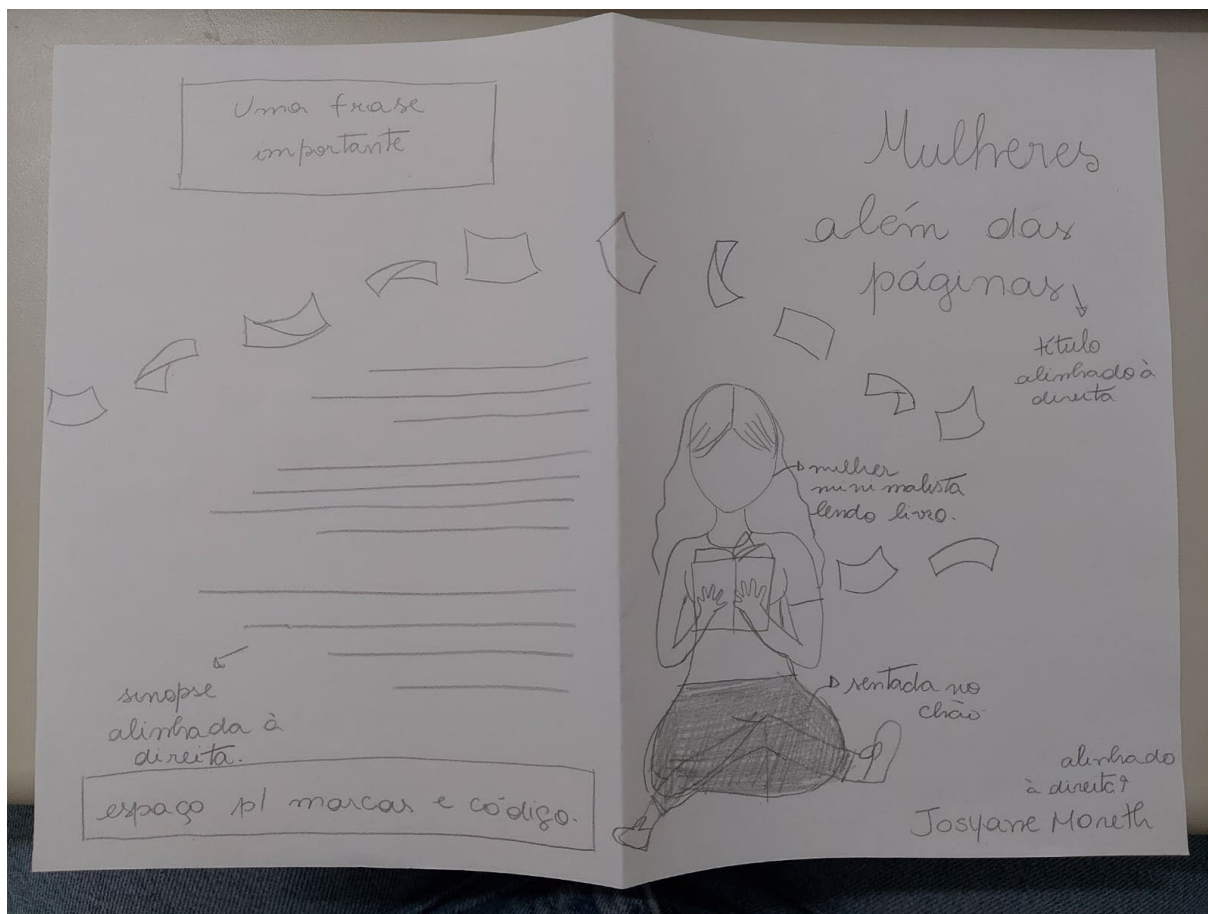 Uma frase
importante
sinopse
alinhada à
direita.
espaço p/ marcas e código.
Mulheres
além das
páginas
título
alinhado à
direita
mulher
minimalista
lendo livro.
sentada no
chão.
alinhado
à direita?
Josyane Moreth